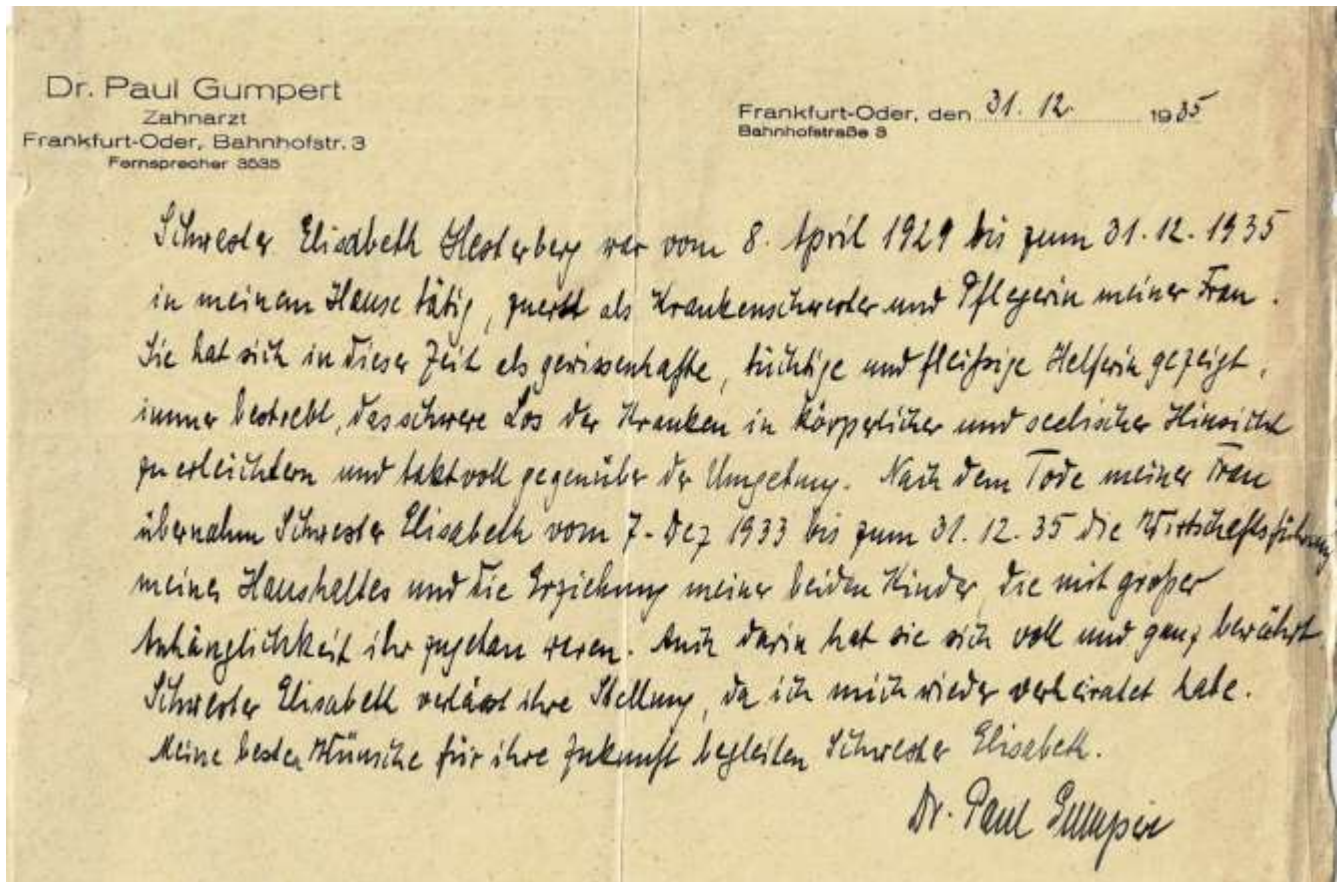 Dr. Paul Gumpert
Zahnarzt
Frankfurt-Oder, Bahnhofstr. 3
Fernsprecher 3535
Frankfurt-Oder, den 31. 12. 1935
Bahnhofstraße 3
Schwester Elisabeth Hesterberg war vom 8. April 1929 bis zum 31.12.1935
in meinem Hause tätig, zuerst als Krankenschwester und Pflegerin meiner Frau.
Sie hat sich in dieser Zeit als gewissenhafte, tüchtige und fleißige Helferin gezeigt,
immer bestrebt, das schwere Los der Kranken in körperlicher und seelischer Hinsicht
zu erleichtern und taktvoll gegenüber der Umgebung. Nach dem Tode meiner Frau
übernahm Schwester Elisabeth vom 7. Dez 1933 bis zum 31. 12. 35 die Wirtschaftsführung
meines Haushaltes und die Erziehung meiner beiden Kinder, die mit großer
Anhänglichkeit ihr zugetan waren. Auch darin hat sie sich voll und ganz bewährt.
Schwester Elisabeth verlässt ihre Stellung, da ich mich wieder verheiratet habe.
Meine besten Wünsche für ihre Zukunft begleiten Schwester Elisabeth.
Dr. Paul Gumpert